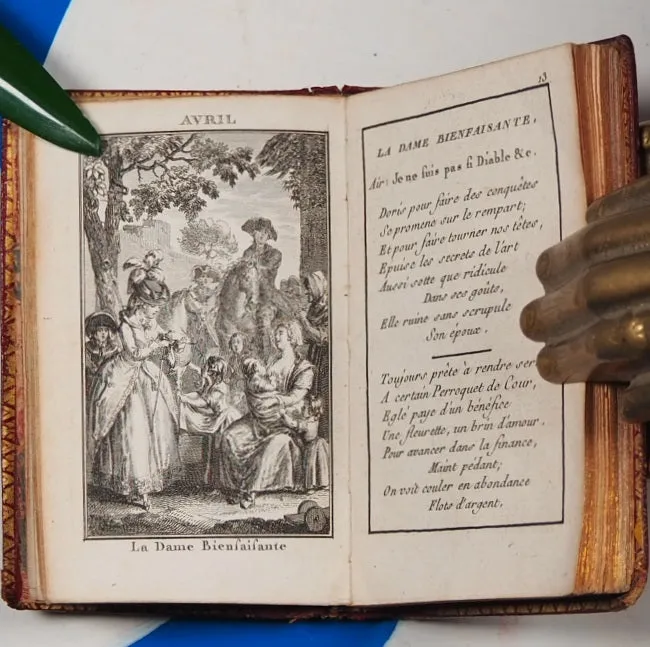 AVRIL
La Dame Bienſaiſante
13
LA DAME BIENFAISANTE,
Air: Je ne ſuis pas ſi Diable &c.
Doris pour faire des conquêtes
Se promene sur le rempart;
Et pour faire tourner nos têtes,
Epuise les secrets de l'art
Aussi sotte que ridicule
Dans ses goûts,
Elle ruine sans scrupule
Son époux.
Toujours prête à rendre ser
A certain Perroquet de Cour,
Eglé paye d'un bénéfice
Une fleurette, un brin d'amour.
Pour avancer dans la finance,
Maint pédant;
On voit couler en abondance
Flots d'argent.